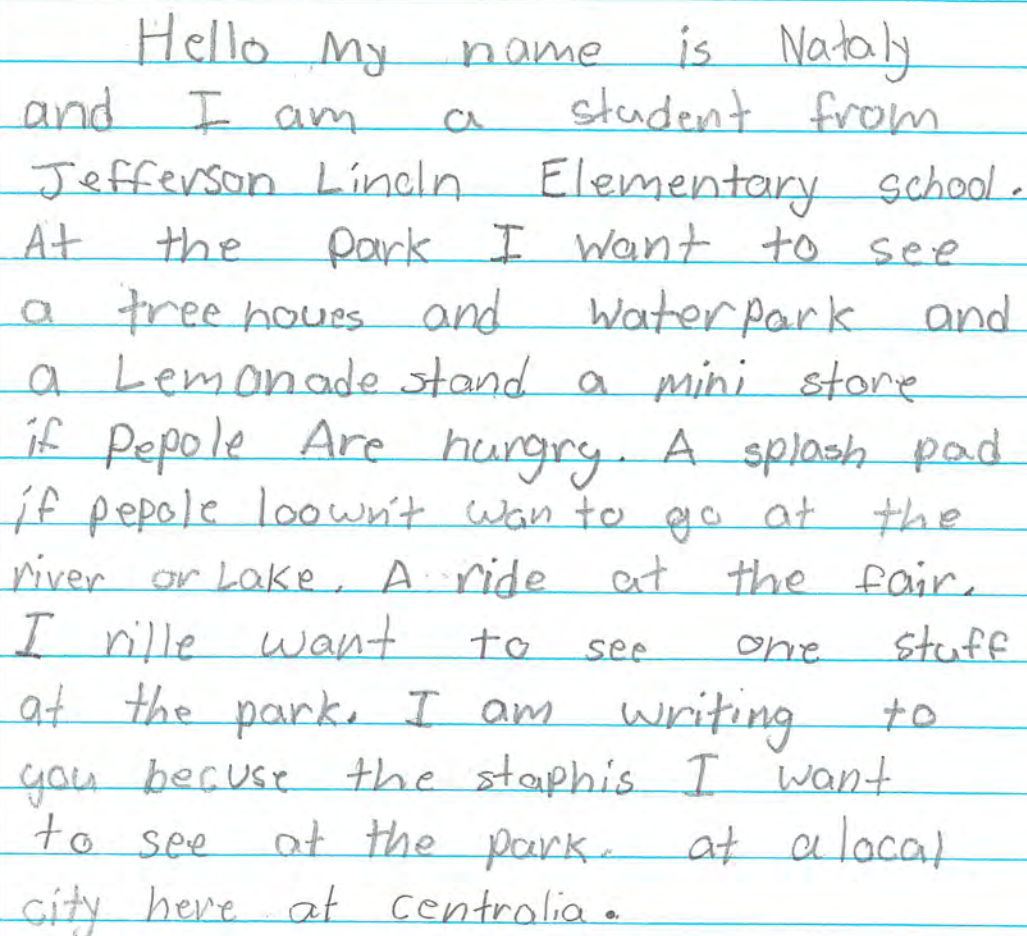 Hello My name is Nataly
and I am a student from
Jefferson Lincln Elementary school.
At the park I want to see
a tree houes and waterpark and
a Lemonade stand a mini store
if pepole Are hungry. A splash pad
if pepole loown't wan to go at the
river or Lake. A ride at the fair.
I rille want to see one stuff
at the park. I am writing to
you becuse the staphis I want
to see at the park. at a local
city here at centralia.